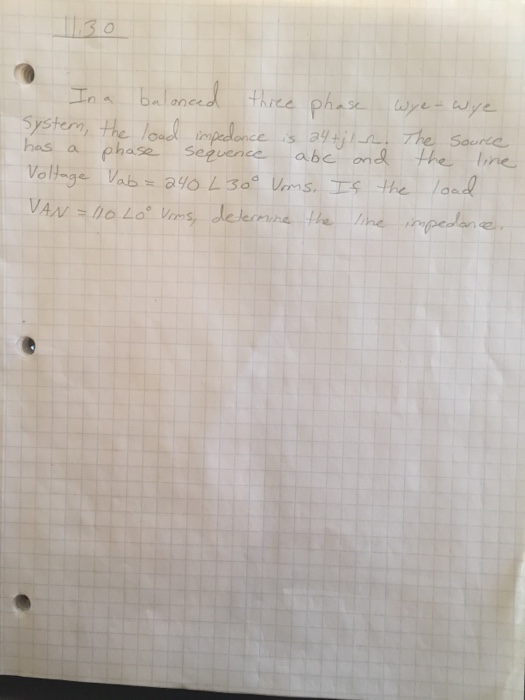 11.30
In a balanced three phase wye-wye
system, the load impedance is 24+j1 Ω. The source
has a phase sequence abc and the line
Voltage Vab = 240 ∠ 30° Vrms. If the load
VAN = 110 ∠0° Vrms, determine the line impedance.